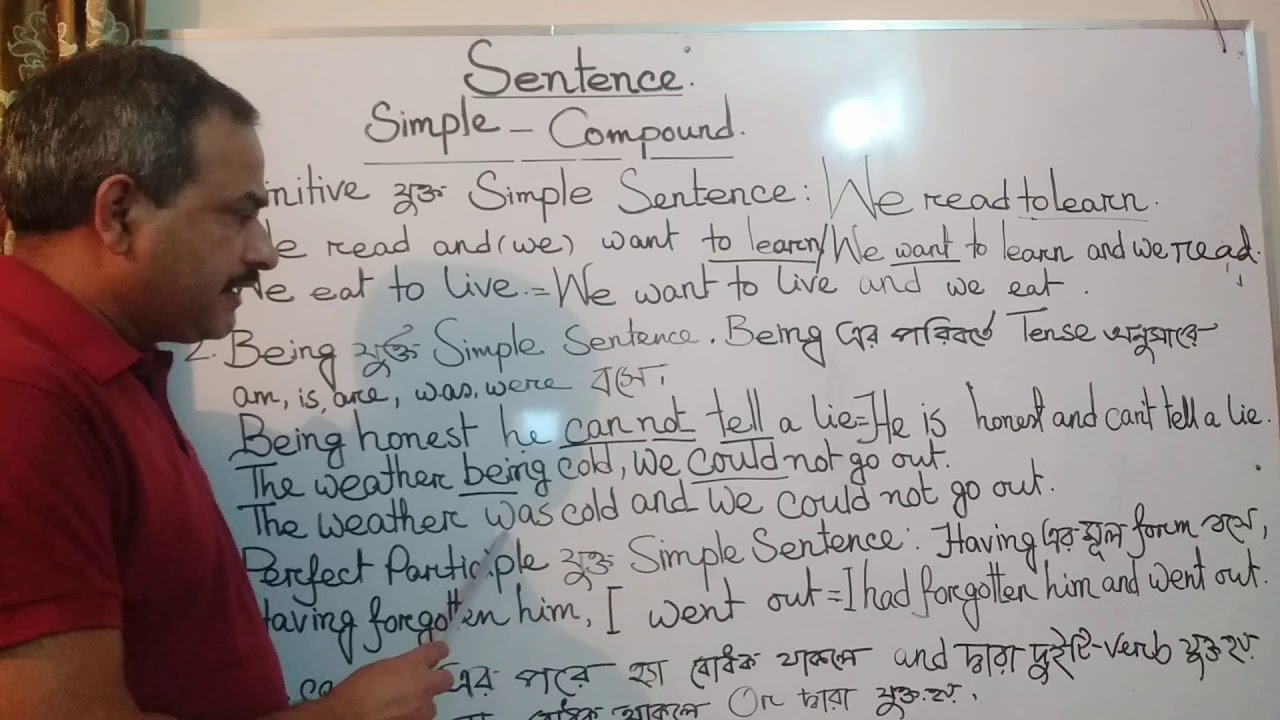 Sentence:
Simple - Compound.
initive যুক্ত Simple Sentence: We read to learn.
We read and (we) want to learn/We want to learn and we read.
We eat to live. = We want to live and we eat.
2. Being যুক্ত Simple Sentence. Being এর পরিবর্তে Tense অনুসারে
am, is, are, was, were বসে।
Being honest he can not tell a lie=He is honest and can't tell a lie.
The weather being cold, we could not go out.
The weather was cold and we could not go out.
Perfect Participle যুক্ত Simple Sentence: Having এর মূল form বসে,
Having forgotten him, I went out = I had forgotten him and went out.
এর পরে হ্যা বোধক থাকলে and দ্বারা দুইটি verb যুক্ত হয়
বোধক থাকলে Or দ্বারা যুক্ত হয়.